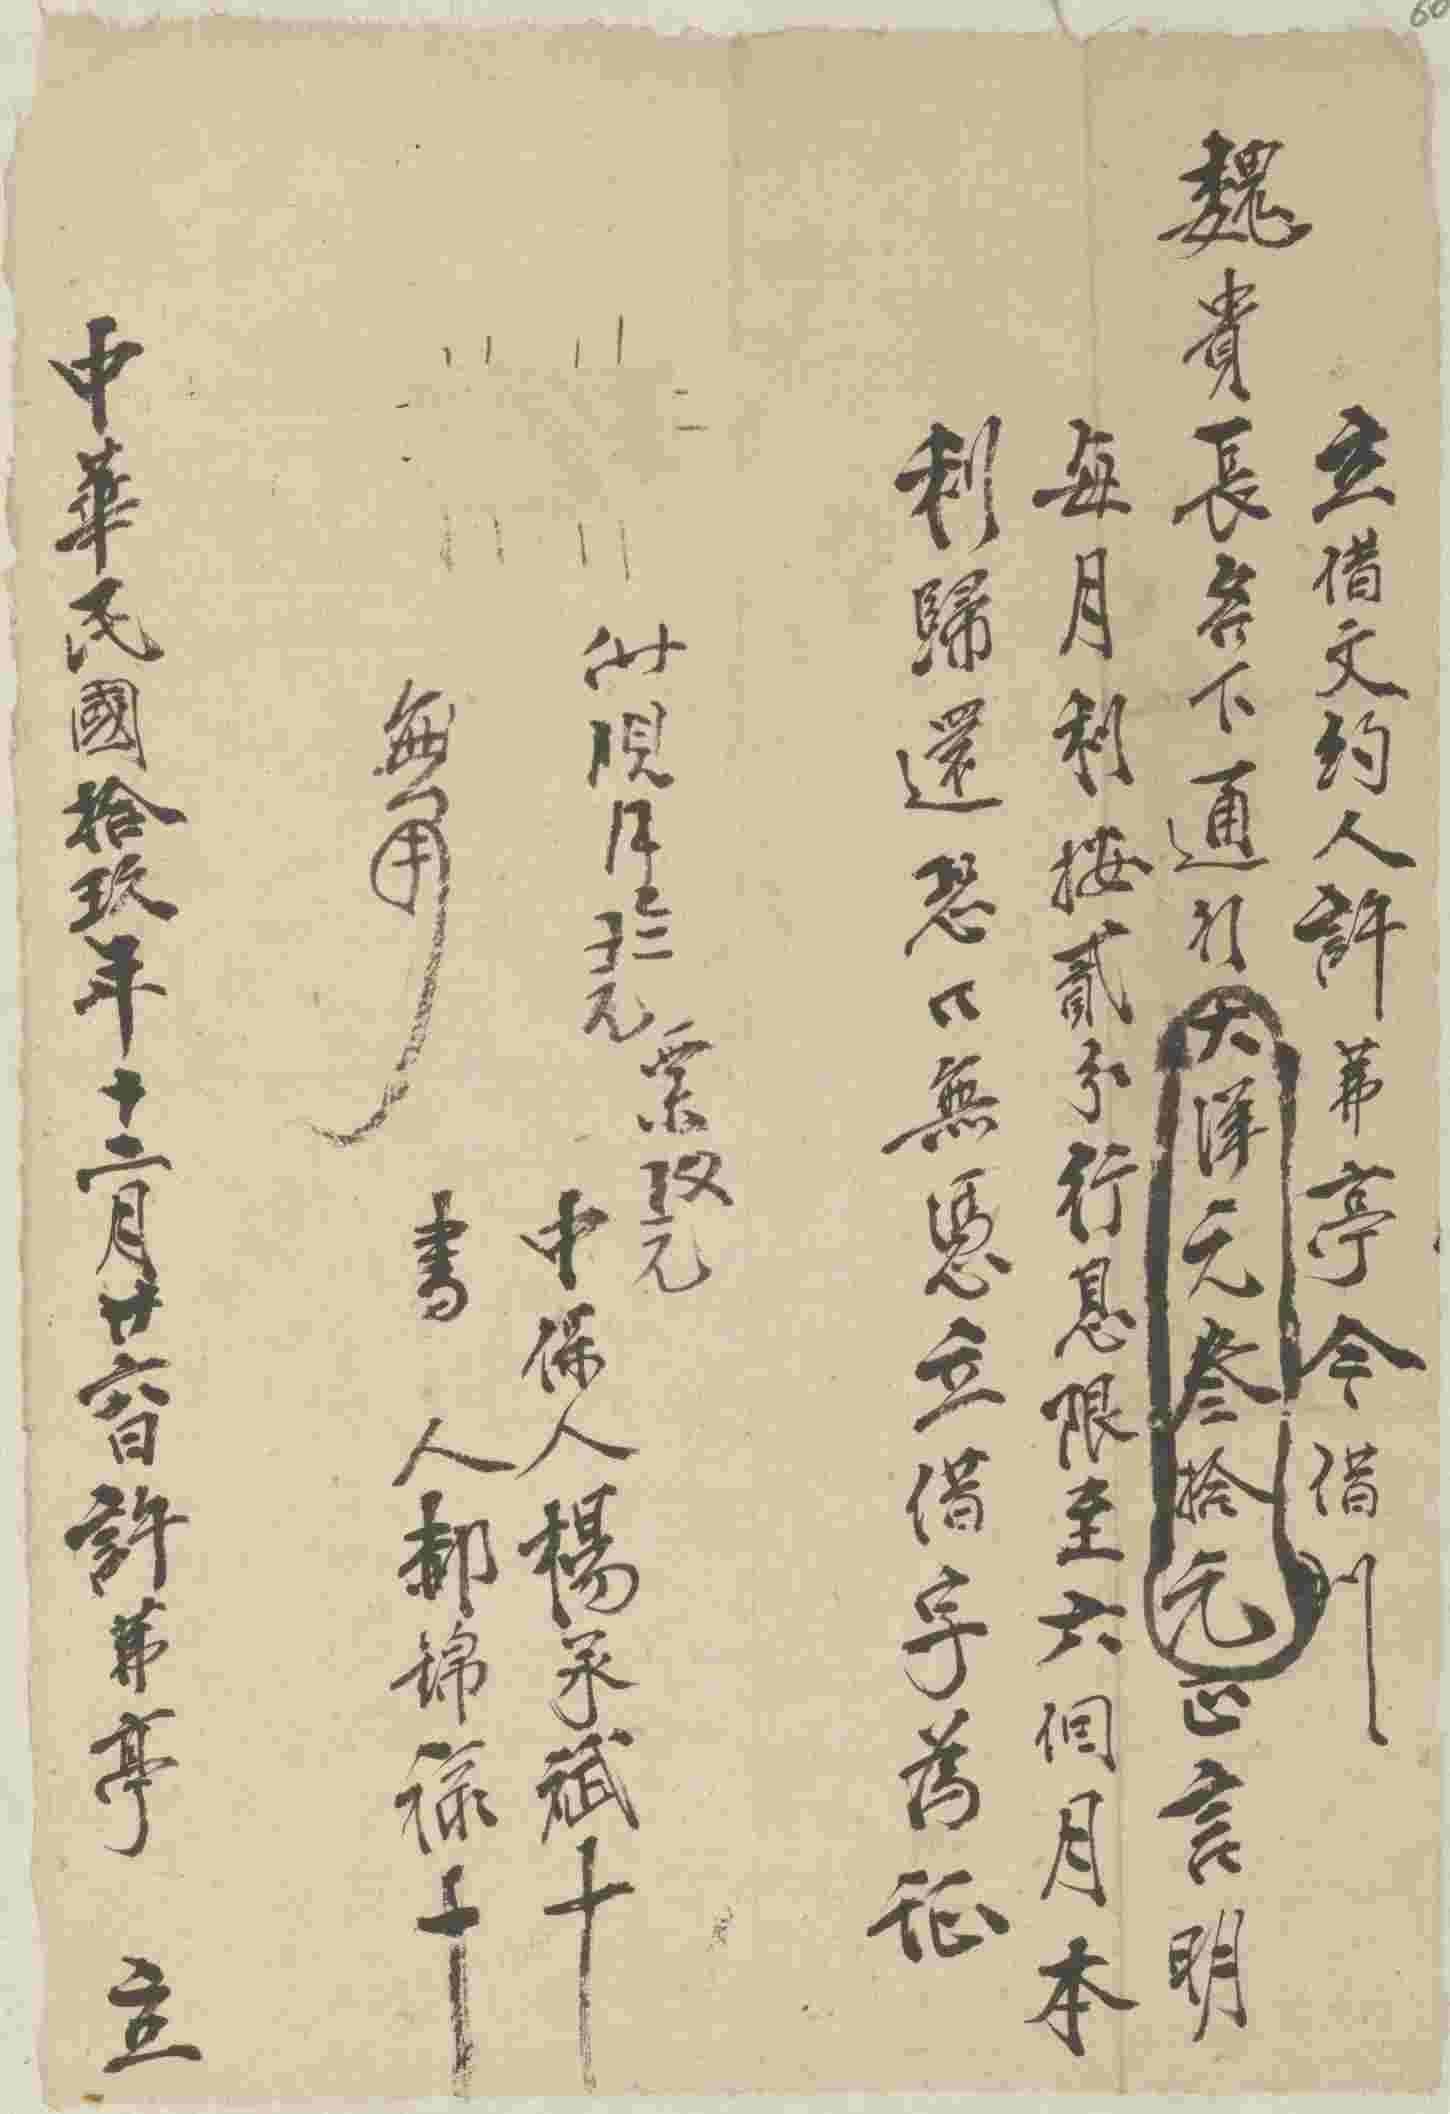 立借文约人許茀亭今借到
魏貴長名下通行大洋元叁拾元正言明
每月利按貳分行息限至六個月本
利歸還恐口無憑立借字為証
付現洋
票玖元
無用
中保人楊承斌十
書人郝錦祿十
中華民國拾玖年十二月廿六日許茀亭立
60